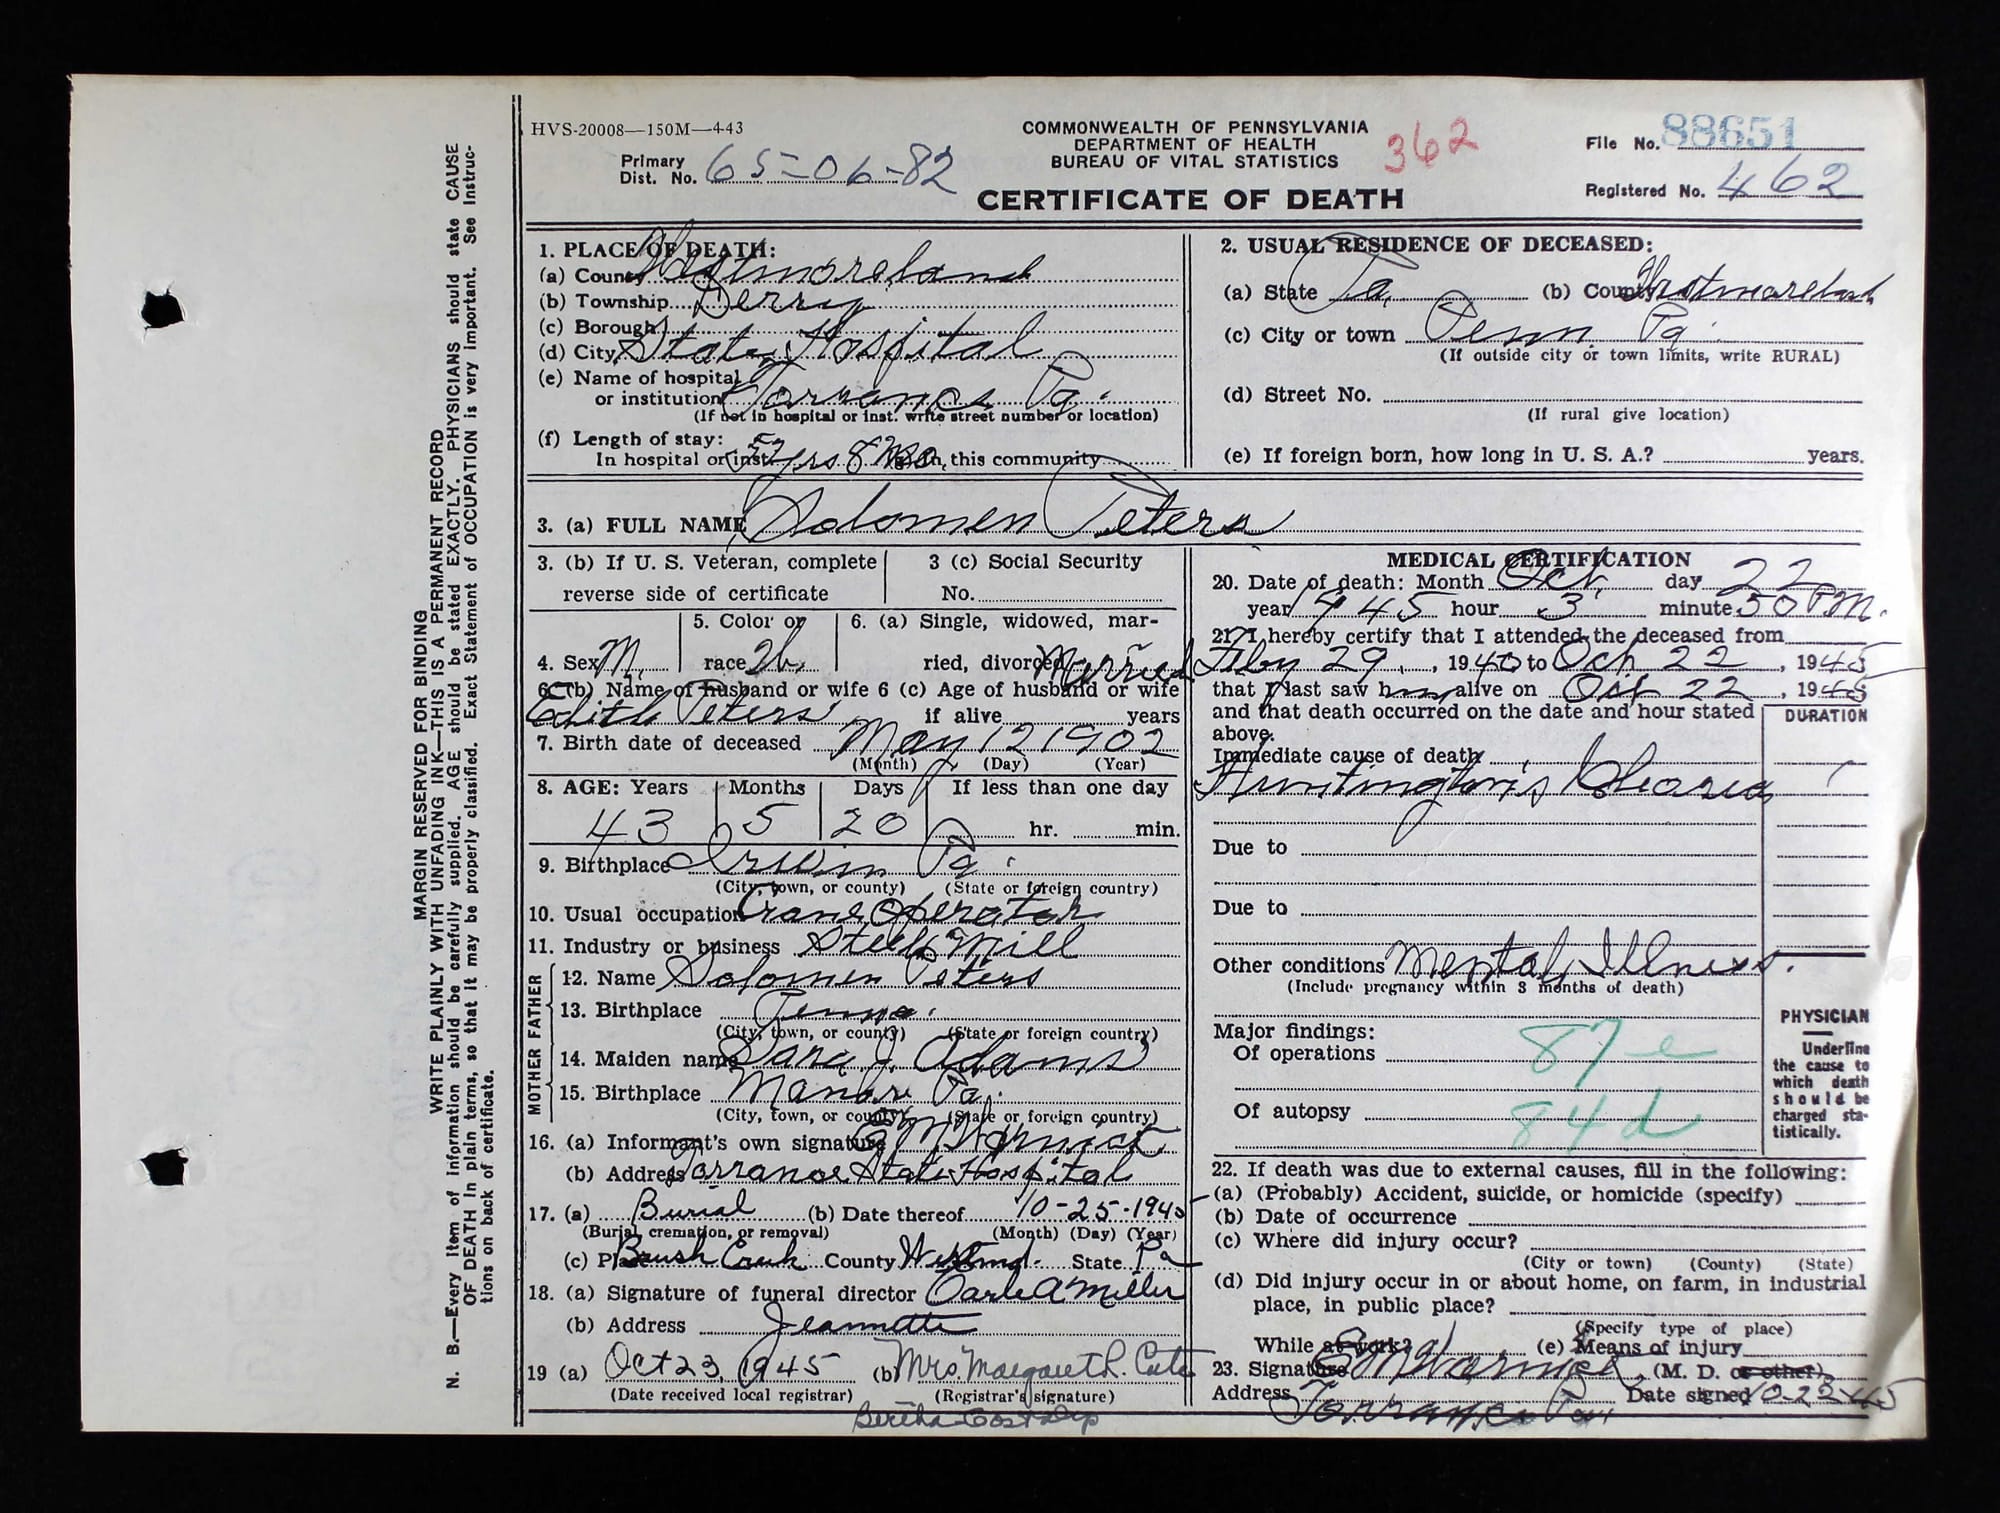 HVS-20008—150M—4-43
COMMONWEALTH OF PENNSYLVANIA
DEPARTMENT OF HEALTH
BUREAU OF VITAL STATISTICS
CERTIFICATE OF DEATH
362
Primary Dist. No. 65-06-82
File No. 88651
Registered No. 462
1. PLACE OF DEATH:
(a) County Westmoreland
(b) Township Derry
(c) Borough
(d) City State Hospital
(e) Name of hospital
or institution Torrance Pa.
(If not in hospital or inst. write street number or location)
(f) Length of stay:
In hospital or inst. 5 yrs 8 mo. In this community
2. USUAL RESIDENCE OF DECEASED:
(a) State Pa. (b) County Westmoreland
(c) City or town Penn Pa.
(If outside city or town limits, write RURAL)
(d) Street No.
(If rural give location)
(e) If foreign born, how long in U. S. A.? years.
3. (a) FULL NAME Solomen Peters
3. (b) If U. S. Veteran, complete
reverse side of certificate
3 (c) Social Security
No.
4. Sex M.
5. Color or
race Wh.
6. (a) Single, widowed, mar-
ried, divorced Married
6 (b) Name of husband or wife 6 (c) Age of husband or wife
Edith Peters if alive years
7. Birth date of deceased May 12 1902
(Month) (Day) (Year)
8. AGE: Years Months Days If less than one day
43 5 20 hr. min.
9. Birthplace Irwin Pa.
(City, town, or county) (State or foreign country)
10. Usual occupation Crane Operator
11. Industry or business Steel Mill
FATHER
12. Name Solomen Peters
13. Birthplace Penna.
(City, town, or county) (State or foreign country)
MOTHER
14. Maiden name Sara J. Adams
15. Birthplace Manor Pa.
(City, town, or county) (State or foreign country)
16. (a) Informant's own signature E M Warnick
(b) Address Torrance State Hospital
17. (a) Burial (b) Date thereof 10-25-1945
(Burial, cremation, or removal) (Month) (Day) (Year)
(c) Place Brush Creek County Westmd. State Pa
18. (a) Signature of funeral director Carle A Miller
(b) Address Jeannette
19 (a) Oct 23, 1945 (b) Mrs. Margaret R.
(Date received local registrar) (Registrar's signature)
Bertha
MEDICAL CERTIFICATION
20. Date of death: Month Oct. day 22
year 1945 hour 3 minute 50 P.M.
21. I hereby certify that I attended the deceased from
Feby 29, 1940 to Oct 22, 1945
that I last saw him alive on Oct 22, 1945
and that death occurred on the date and hour stated
above.
DURATION
Immediate cause of death
Huntington's Chorea
Due to
Due to
Other conditions Mental Illness.
(Include pregnancy within 3 months of death)
Major findings:
Of operations 87 e
Of autopsy 84 d
PHYSICIAN
Underline
the cause to
which death
should be
charged sta-
tistically.
22. If death was due to external causes, fill in the following:
(a) (Probably) Accident, suicide, or homicide (specify)
(b) Date of occurrence
(c) Where did injury occur?
(City or town) (County) (State)
(d) Did injury occur in or about home, on farm, in industrial
place, in public place?
(Specify type of place)
While at work? (e) Means of injury
23. Signature E M Warnick (M. D. or other)
Address Torrance Pa. Date signed 10-22-45
MARGIN RESERVED FOR BINDING
WRITE PLAINLY WITH UNFADING INK—THIS IS A PERMANENT RECORD
N. B.—Every item of information should be carefully supplied. AGE should be stated EXACTLY. PHYSICIANS should state CAUSE
OF DEATH in plain terms, so that it may be properly classified. Exact Statement of OCCUPATION is very important. See instruc-
tions on back of certificate.